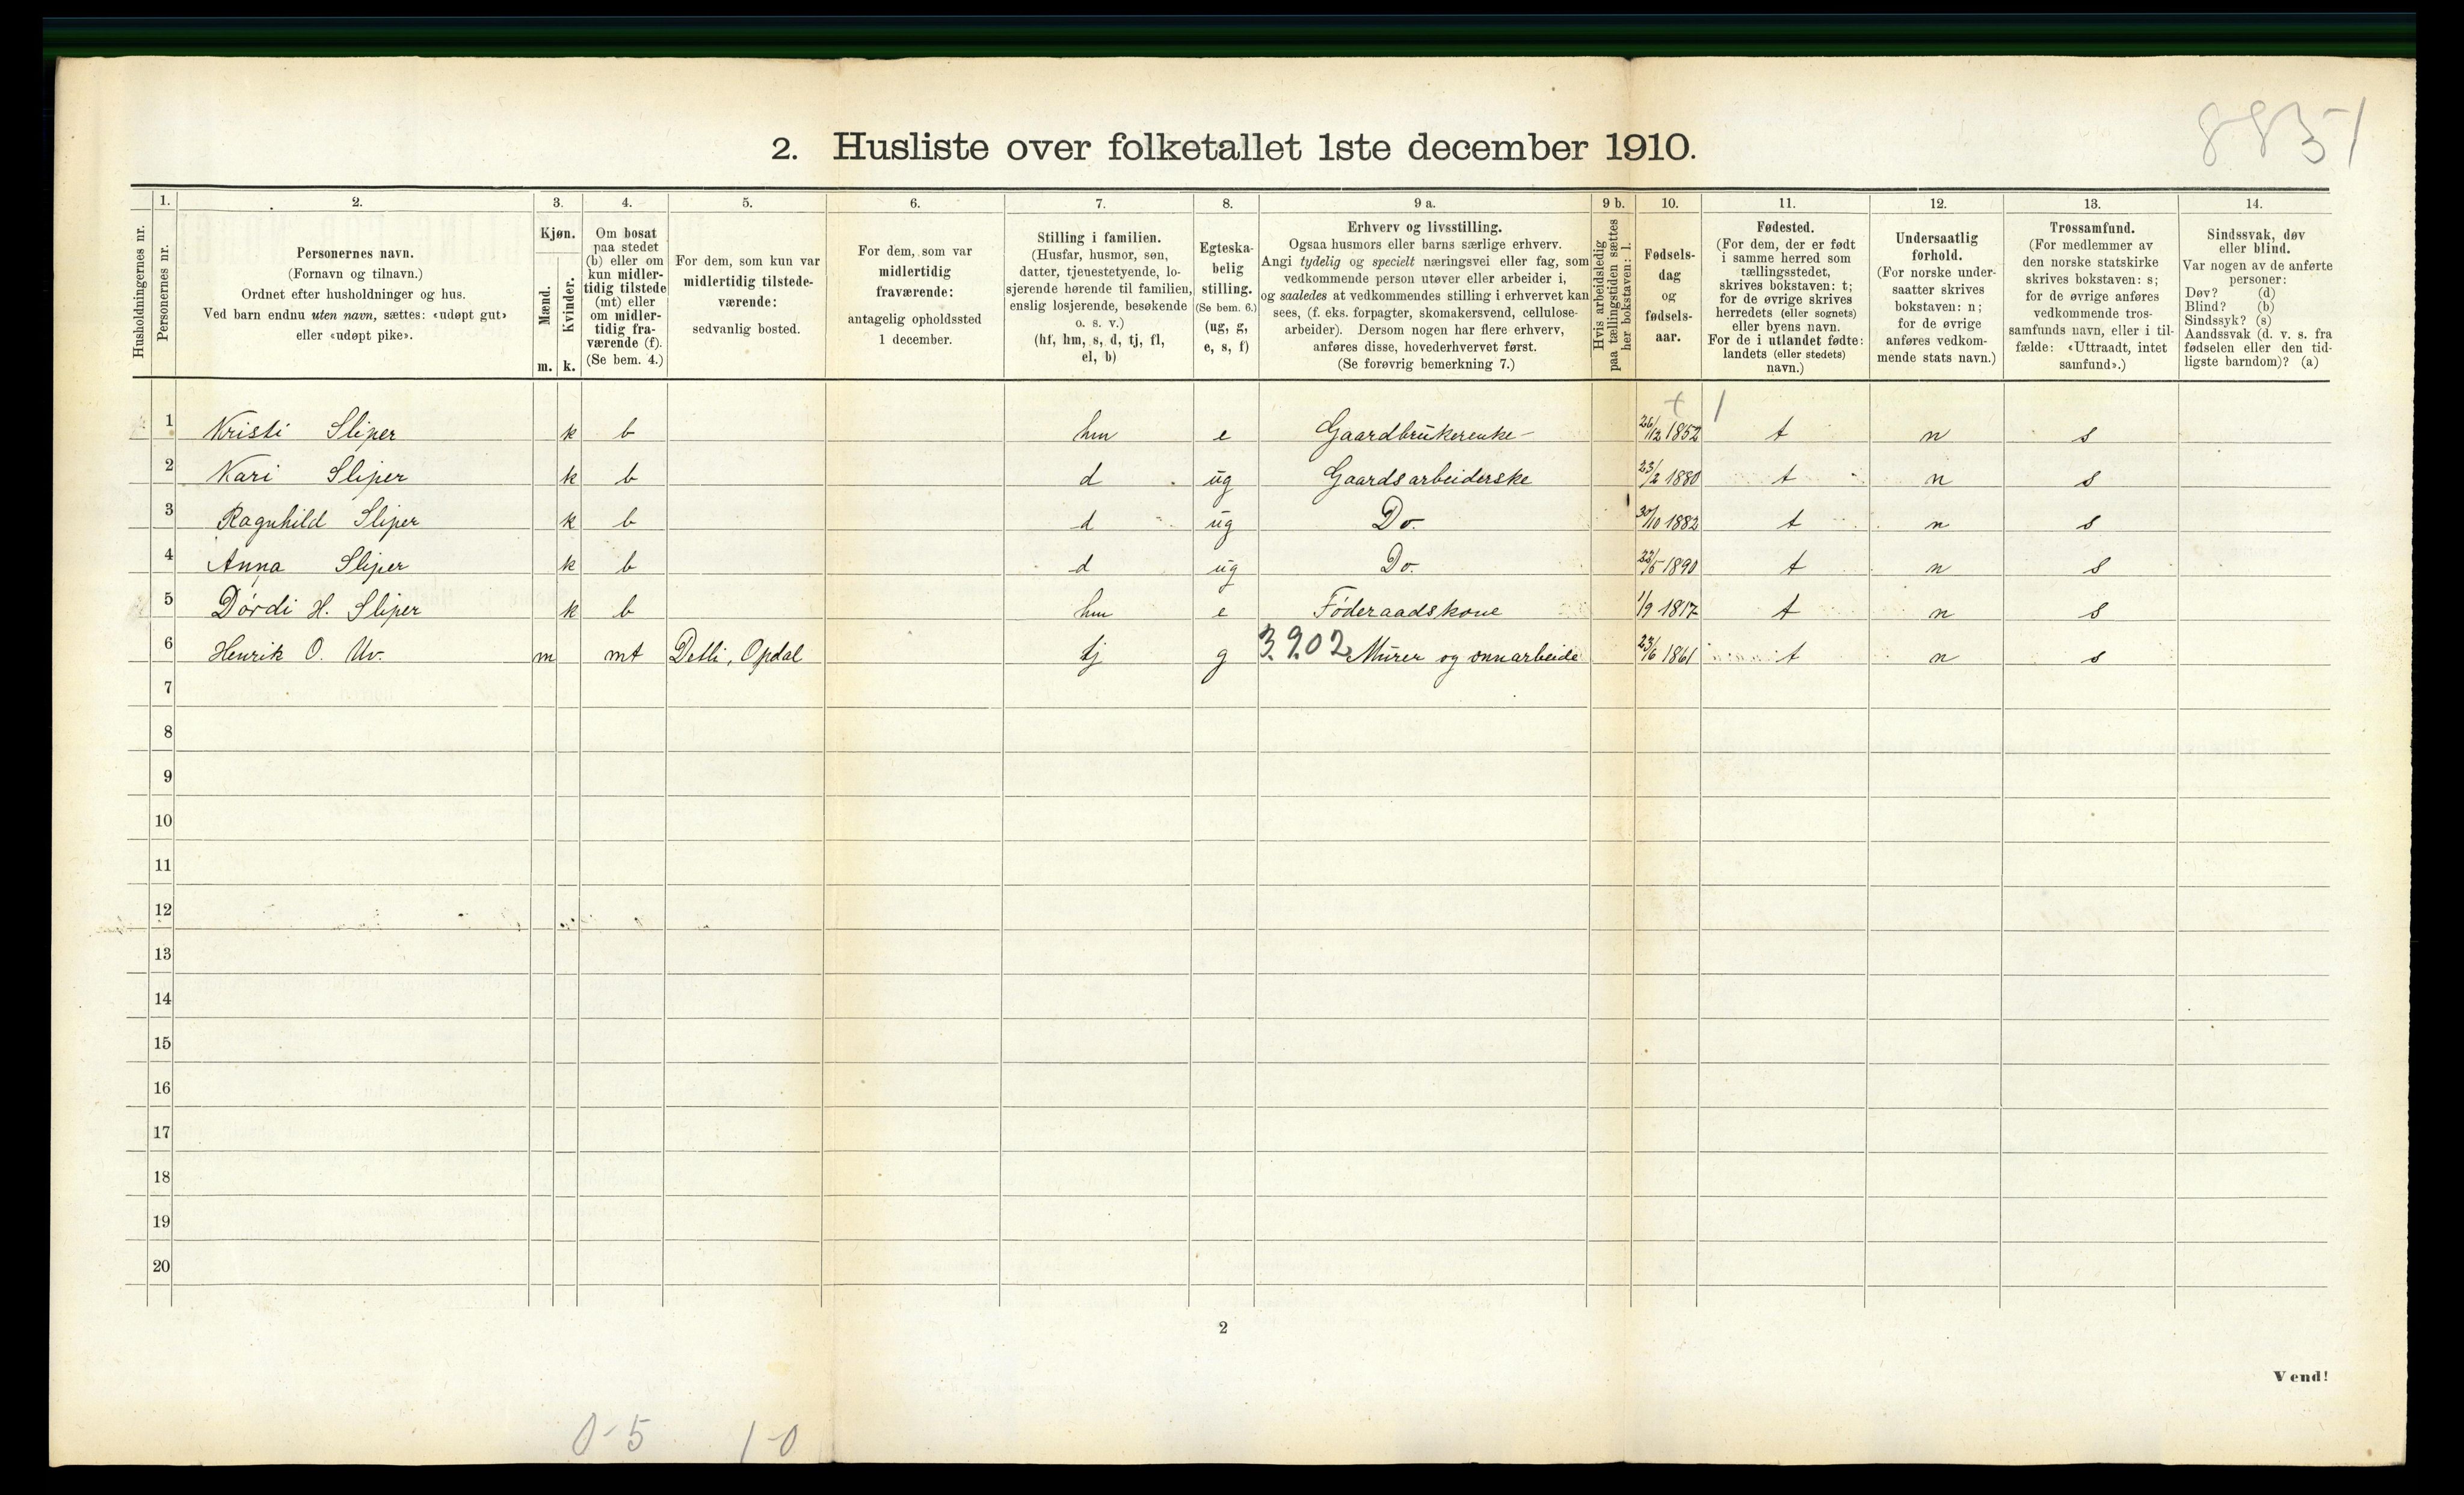 8851
2. Husliste over folketallet 1ste december 1910.
Husholdningernes nr.
1.
Personernes nr.
2.
Personernes navn.
(Fornavn og tilnavn.)
Ordnet efter husholdninger og hus.
Ved barn endnu uten navn, sættes: «udøpt gut»
eller «udøpt pike».
3.
Kjøn.
Mænd.
Kvinder.
m. k.
4.
Om bosat
paa stedet
(b) eller om
kun midler-
tidig tilstede
(mt) eller
om midler-
tidig fra-
værende (f).
(Se bem. 4.)
5.
For dem, som kun var
midlertidig tilstede-
værende:
sedvanlig bosted.
6.
For dem, som var
midlertidig
fraværende:
antagelig opholdssted
1 december.
7.
Stilling i familien.
(Husfar, husmor, søn,
datter, tjenestetyende, lo-
sjerende hørende til familien,
enslig losjerende, besøkende
o. s. v.)
(hf, hm, s, d, tj, fl,
el, b)
8.
Egteska-
belig
stilling.
(Se bem. 6.)
(ug, g,
e, s, f)
9 a.
Erhverv og livsstilling.
Ogsaa husmors eller barns særlige erhverv.
Angi tydelig og specielt næringsvei eller fag, som
vedkommende person utøver eller arbeider i,
og saaledes at vedkommendes stilling i erhvervet kan
sees, (f. eks. forpagter, skomakersvend, cellulose-
arbeider). Dersom nogen har flere erhverv,
anføres disse, hovederhvervet først.
(Se forøvrig bemerkning 7.)
9 b.
Hvis arbeidsledig
paa tællingstiden sættes
her bokstaven: l.
10.
Fødsels-
dag
og
fødsels-
aar.
11.
Fødested.
(For dem, der er født
i samme herred som
tællingsstedet,
skrives bokstaven: t;
for de øvrige skrives
herredets (eller sognets)
eller byens navn.
For de i utlandet fødte:
landets (eller stedets)
navn.)
12.
Undersaatlig
forhold.
(For norske under-
saatter skrives
bokstaven: n;
for de øvrige
anføres vedkom-
mende stats navn.)
13.
Trossamfund.
(For medlemmer av
den norske statskirke
skrives bokstaven: s;
for de øvrige anføres
vedkommende tros-
samfunds navn, eller i til-
fælde: «Uttraadt, intet
samfund».)
14.
Sindssvak, døv
eller blind.
Var nogen av de anførte
personer:
Døv? (d)
Blind? (b)
Sindssyk? (s)
Aandssvak (d. v. s. fra
fødselen eller den tid-
ligste barndom)? (a)
1 Kristi Sliper k b hm e Gaardbrukerenke 26/12 1852 t n s
2 Kari Sliper k b d ug Gaardsarbeiderske 23/2 1880 t n s
3 Ragnhild Sliper k b d ug Do. 30/10 1882 t n s
4 Anna Sliper k b d ug Do. 1890 t n s
5 Dørdi H. Sliper k b hm e Føderaadskone 1/9 1817 t n s
6 Henrik O. Uv. m mt Detli, Opdal tj g 3.902 Murer og onnarbeide 23/6 1861 t n s
7
8
9
10
11
12
13
14
15
16
17
18
19
20
2
Vend!
0-5 1-0